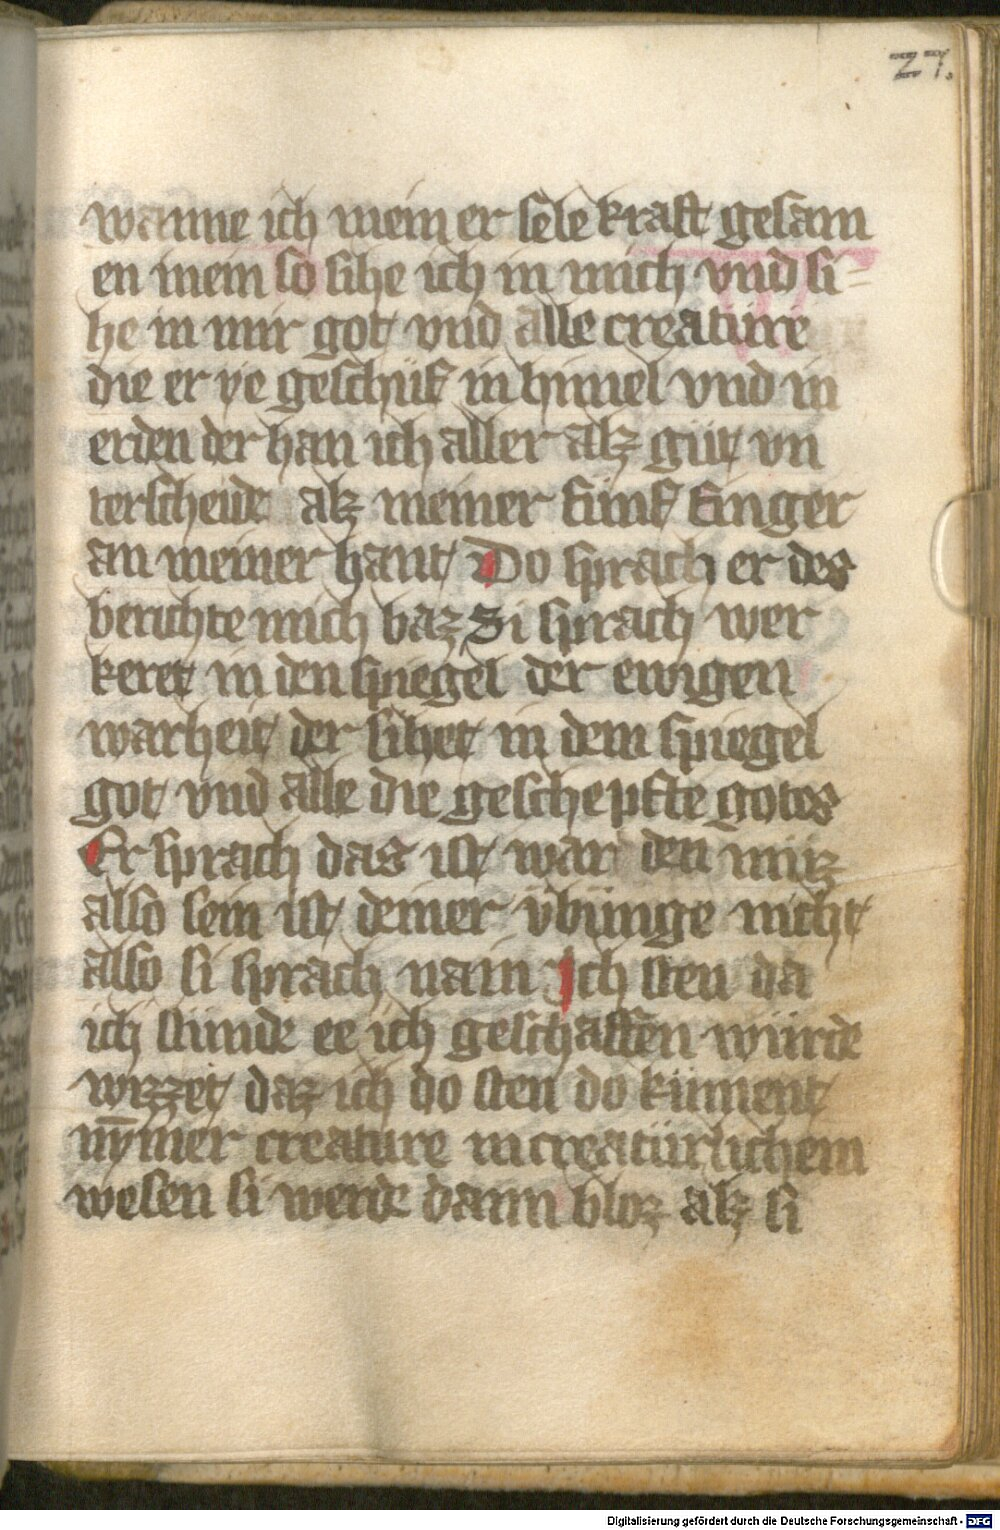 27.
wanne ich meiner sele kraft gesam
en mein so sihe ich in mich vnd si-
he in mir got vnd alle creature
die er ye geschuf in himel vnd in
erden der han ich aller alz gut vn
terscheide alz meiner funf finger
an meiner hant Do sprach er des
berichte mich baz Si sprach wer
keret in den spiegel der ewigen
warheit der sihet in dem spiegel
got vnd alle die geschepfte gotes
Er sprach das ist war den müz
also sein ist deiner vbunge nicht
also si sprach nain Ich sten da
ich stunde ee ich geschaffen würde
wizzet daz ich do sten do kument
nȳmer creature in creatürlichem
wesen si werde dann bloz alz si
Digitalisierung gefördert durch die Deutsche Forschungsgemeinschaft - DFG